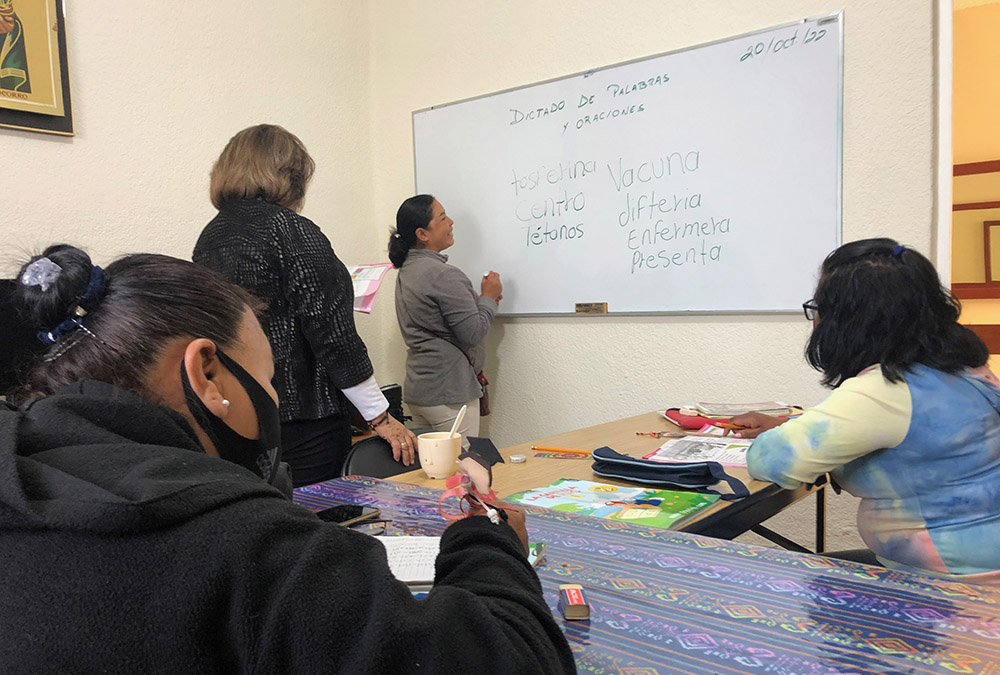 20/oct/22
DICTADO DE PALABRAS
Y ORACIONES
tosferina
centro
Tétanos
Vacuna
difteria
Enfermera
Presenta